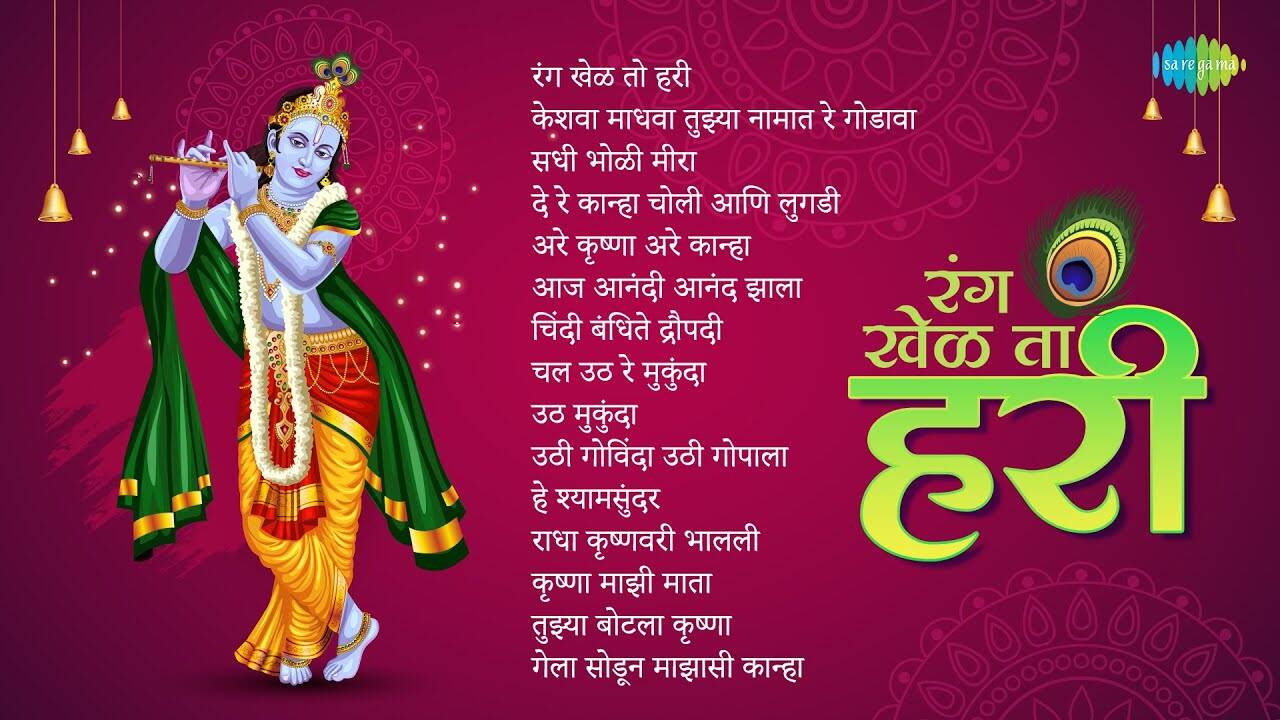 रंग खेळ तो हरी
केशवा माधवा तुझ्या नामात रे गोडावा
सधी भोळी मीरा
दे रे कान्हा चोली आणि लुगडी
अरे कृष्णा अरे कान्हा
आज आनंदी आनंद झाला
चिंदी बंधिते द्रौपदी
चल उठ रे मुकुंदा
उठ मुकुंदा
उठी गोविंदा उठी गोपाला
हे श्यामसुंदर
राधा कृष्णवरी भालली
कृष्णा माझी माता
तुझ्या बोटला कृष्णा
गेला सोडून माझासी कान्हा
sa re ga ma
रंग
खेळ ता
हरी